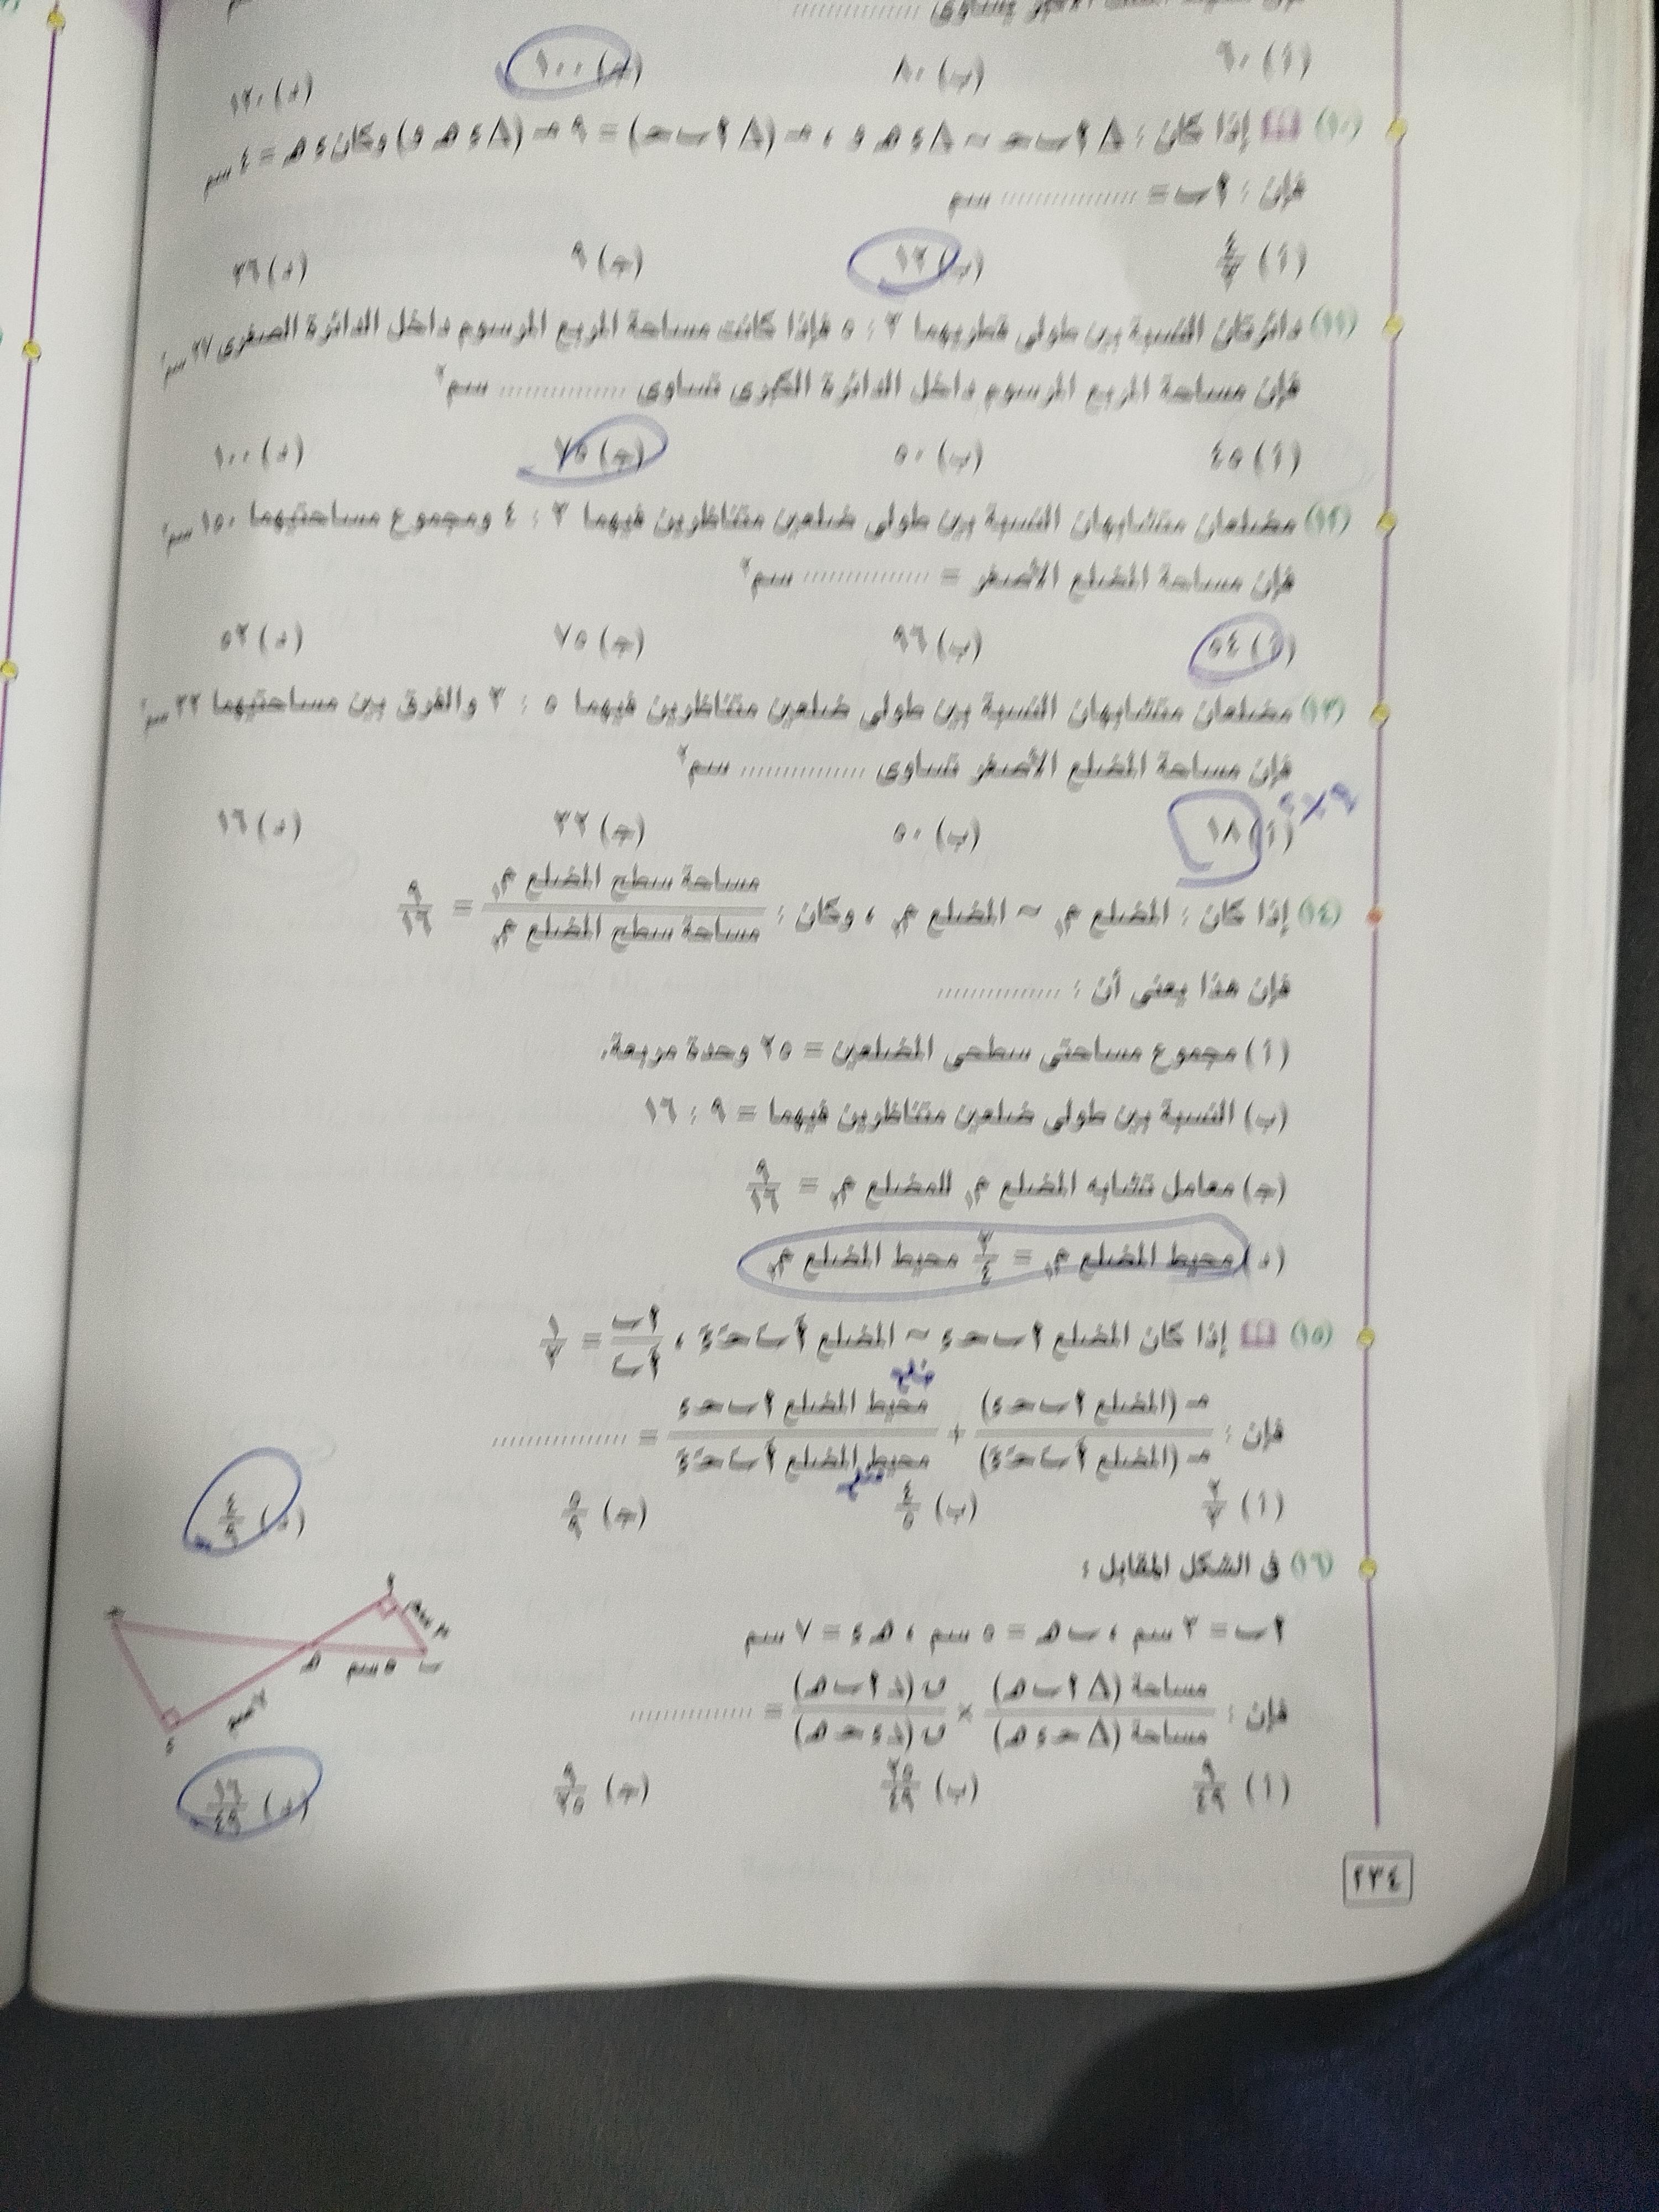 (أ) ٦٠ (ب) ٨٠ (ج) ١٠٠ (د) ١٢٠
(١٠) إذا كان : Δ ٢ ب ح ~ Δ ء ه و ، م (Δ ٢ ب ح) = ٩ م (Δ ء ه و) وكان ء ه = ٤ سم
فإن : ٢ ب = ............... سم
(أ) ٤/٣ (ب) ١٢ (ج) ٩ (د) ٣٦
(١١) دائرتان النسبة بين طولى قطريهما ٣ : ٥ فإذا كانت مساحة المربع المرسوم داخل الدائرة الصغرى ٢٧ سم٢
فإن مساحة المربع المرسوم داخل الدائرة الكبرى تساوى ............... سم٢
(أ) ٤٥ (ب) ٥٠ (ج) ٧٥ (د) ١٠٠
(١٢) مضلعان متشابهان النسبة بين طولى ضلعين متناظرين فيهما ٣ : ٤ ومجموع مساحتيهما ١٥٠ سم٢
فإن مساحة المضلع الأصغر = ............... سم٢
(أ) ٥٤ (ب) ٩٦ (ج) ٧٥ (د) ٥٢
(١٣) مضلعان متشابهان النسبة بين طولى ضلعين متناظرين فيهما ٥ : ٣ والفرق بين مساحتيهما ٣٢ سم٢
فإن مساحة المضلع الأصغر تساوى ............... سم٢
(أ) ١٨ (ب) ٥٠ (ج) ٣٢ (د) ١٦
(١٤) إذا كان : المضلع م١ ~ المضلع م٢ ، وكان : مساحة سطح المضلع م١ / مساحة سطح المضلع م٢ = ٩/١٦
فإن هذا يعنى أن : ...............
(أ) مجموع مساحتى سطحى المضلعين = ٢٥ وحدة مربعة.
(ب) النسبة بين طولى ضلعين متناظرين فيهما = ٩ : ١٦
(ج) معامل تشابه المضلع م١ للمضلع م٢ = ٩/١٦
(د) محيط المضلع م١ = ٣/٤ محيط المضلع م٢
(١٥) إذا كان المضلع ٢ ب ح ء ~ المضلع ٢َ بَ حَ ءَ ، ٢ ب / ٢َ بَ = ١/٣
فإن : م (المضلع ٢ ب ح ء) / م (المضلع ٢َ بَ حَ ءَ) + محيط المضلع ٢ ب ح ء / محيط المضلع ٢َ بَ حَ ءَ = ...............
(أ) ٢/٣ (ب) ٤/٥ (ج) ٥/٩ (د) ٤/٩
(١٦) فى الشكل المقابل :
٢ ب = ٣ سم ، ب ه = ٥ سم ، ه ء = ٧ سم
فإن : مساحة (Δ ٢ ب ه) / مساحة (Δ ح ء ه) × ق (د ٢ ب ه) / ق (د ء ح ه) = ...............
(أ) ٩/٤٩ (ب) ٢٥/٤٩ (ج) ٩/٢٥ (د) ١٦/٤٩
٢
٣ سم
ب
٥ سم
ه
٧ سم
ء
ح
٢٣٤